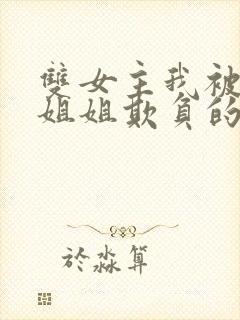 雙女主我被
姐姐欺負的
於淼算